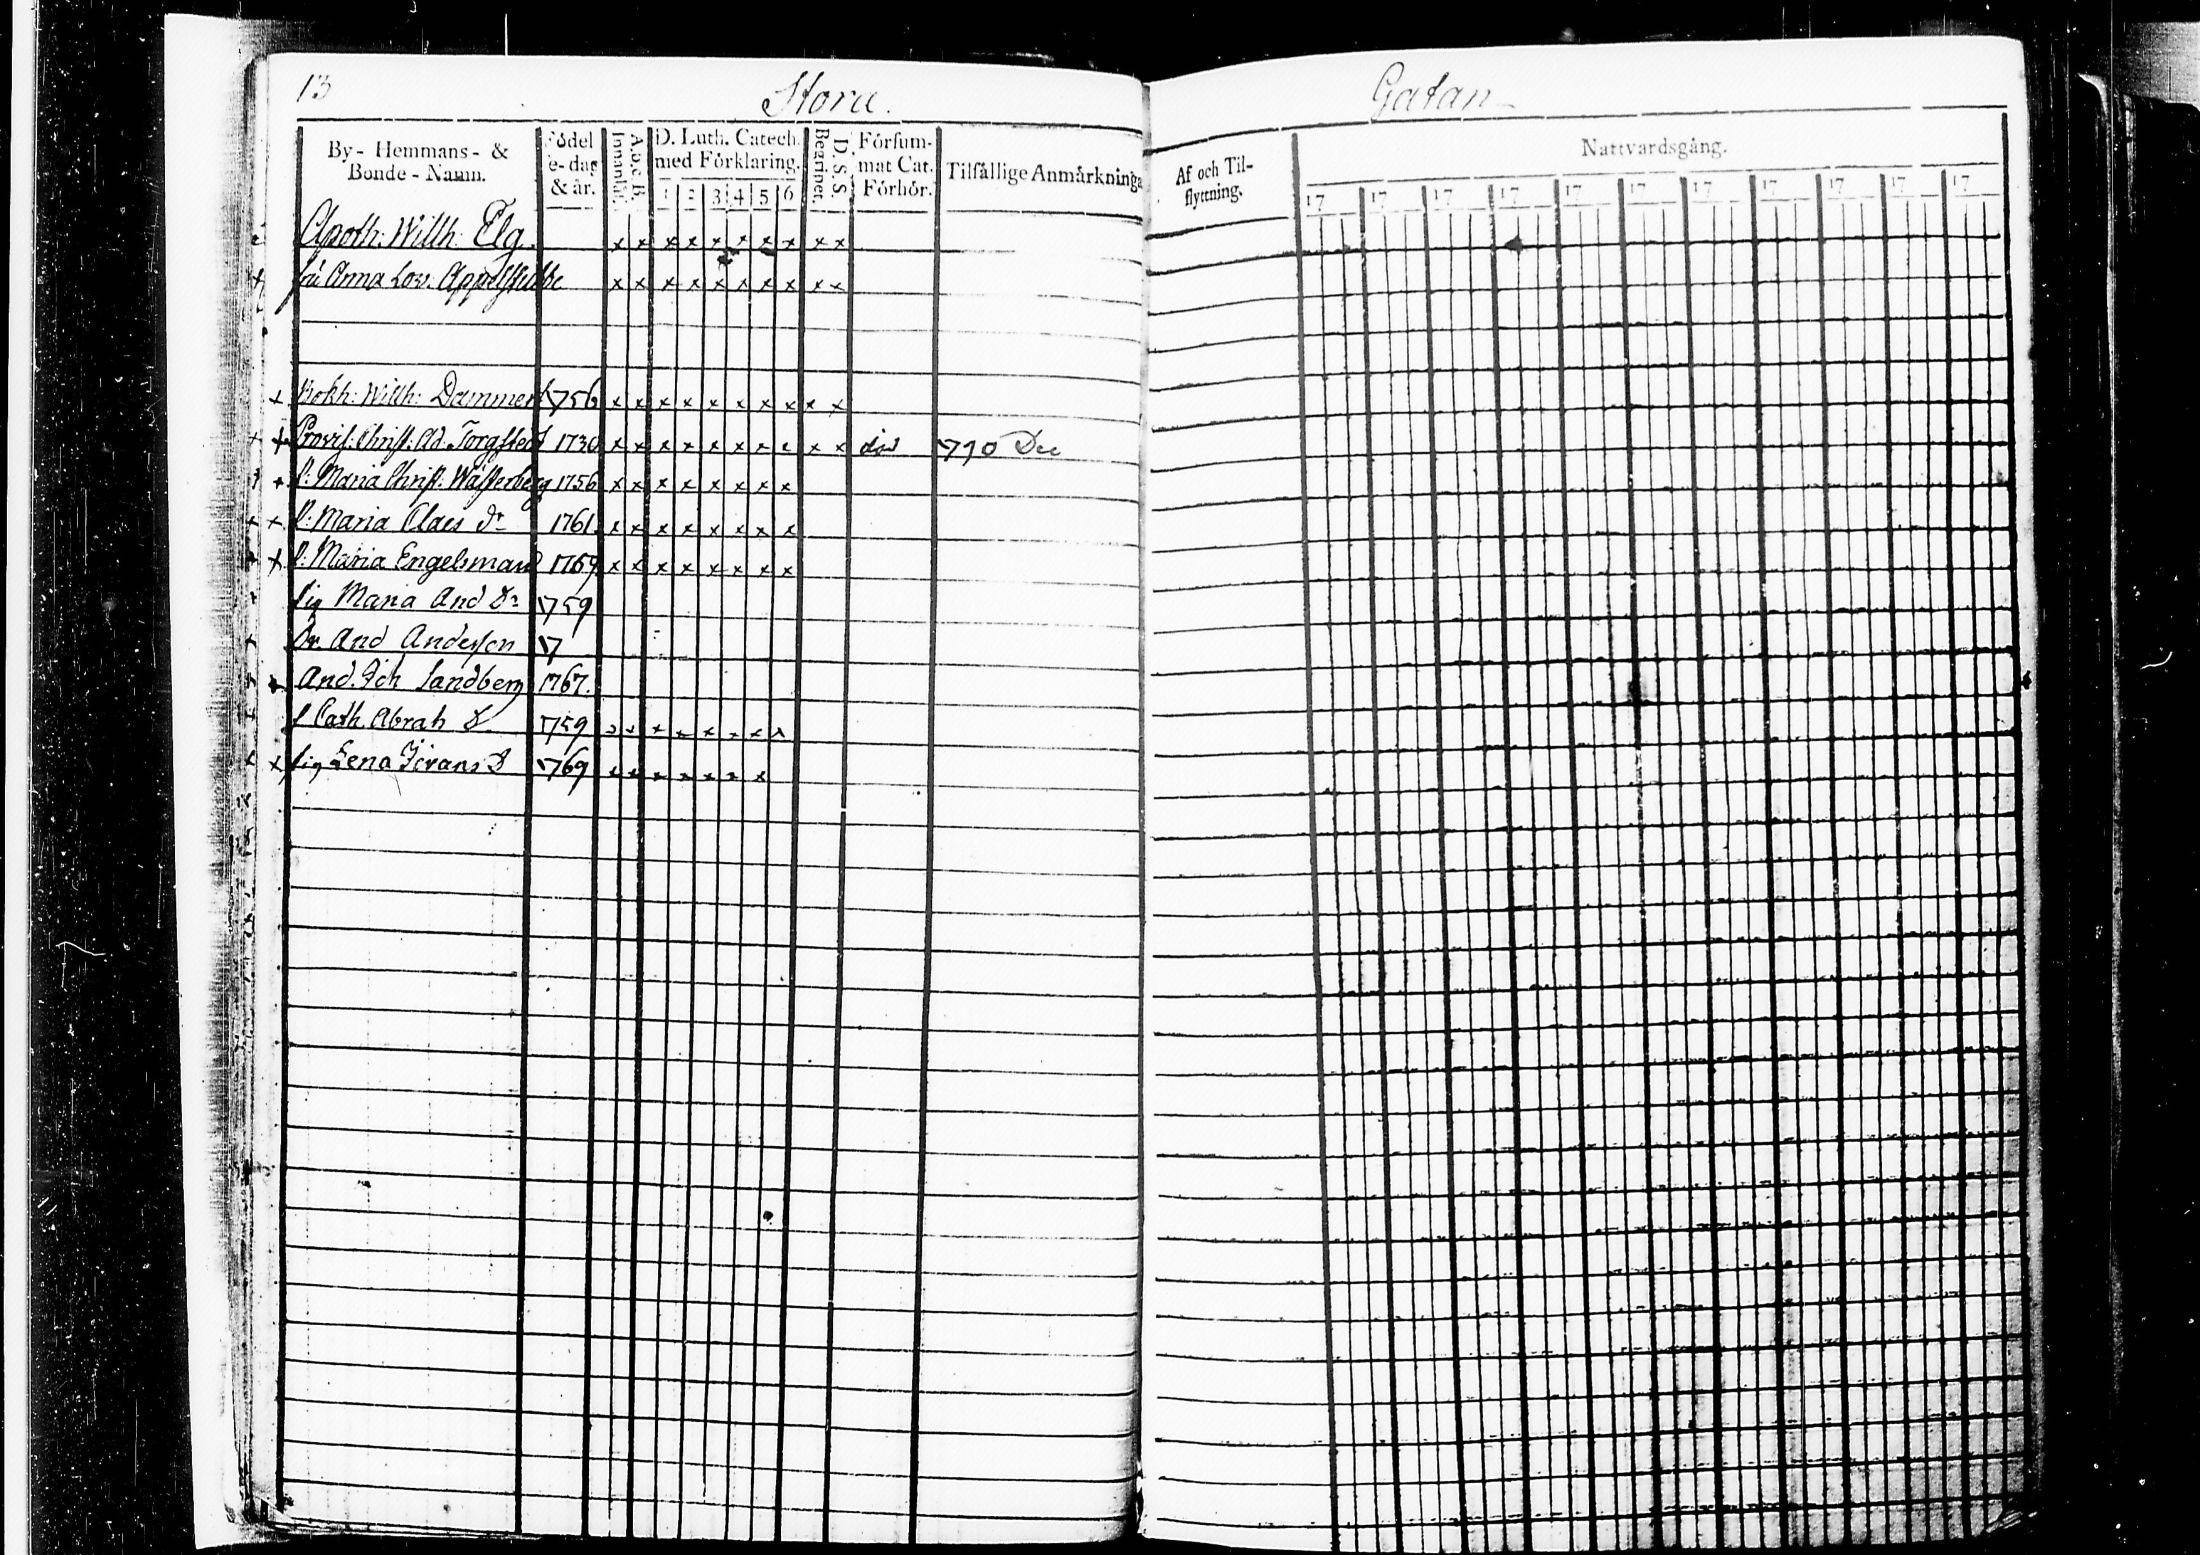 13
Stora.
Gatan
By- Hemmans- & Bonde-Namn.
Födelse-dag & år.
Innanläs.
A.b.c.B.
D. Luth. Catech. med Förklaring.
1 2 3 4 5 6
Begriper.
D. S. S.
Försummat Cat. Förhör.
Tilfällige Anmärkninga
Af och Tilflyttning.
Nattvardsgång.
17 17 17 17 17 17 17 17 17 17 17
Apoth: Wilh: Elg. x x x x x x x x x x
fru Anna Lov. Appelstubbe x x x x x x x x x x
Bokh: Wilh: Dammert 1756 x x x x x x x x x x
Provis: Christ: Ad. Torgsted 1730 x x x x x x x x x x död 790 Dec
P: Maria Christ: Wässerberg 1756 x x x x x x x x
P: Maria Claes dr 1761. x x x x x x x x
P: Maria Engelsman 1769 x x x x x x x x
Pig Maria And Dr 1759
Dr. And Andersson 17
And. Joh Sandberg 1767.
P Cath. Abrah D. 1759 x x x x x x x x
Pig Lena Jörans D 1769 x x x x x x x